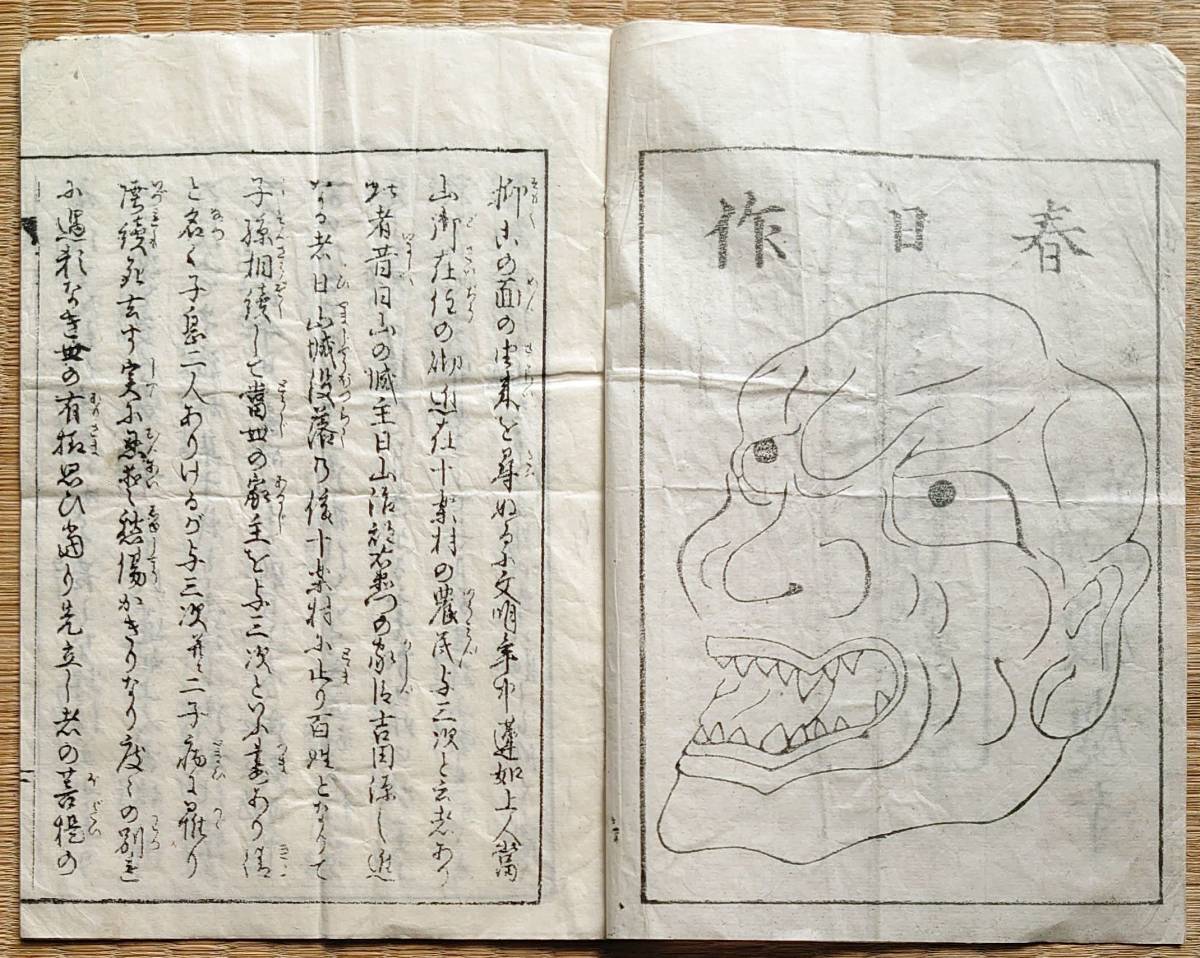 春日作
抑この面の由来を尋ぬるに文明年中蓮如上人當
山御在住の砌近在十楽村の農民与三次と云者あり
此者昔日山の城主日山治部右衛門の家臣吉田源之進
なる者日山城没落の後十楽村に止り百姓となりて
子孫相續して當世の家主を与三次といふ妻あり清
と名く子息二人ありけるが与三次並に二子病に罹り
陸續死去す実に悲歎愁傷かぎりなり度々の別れ
に過形なき世の有様思ひ當り先立し者の菩提の